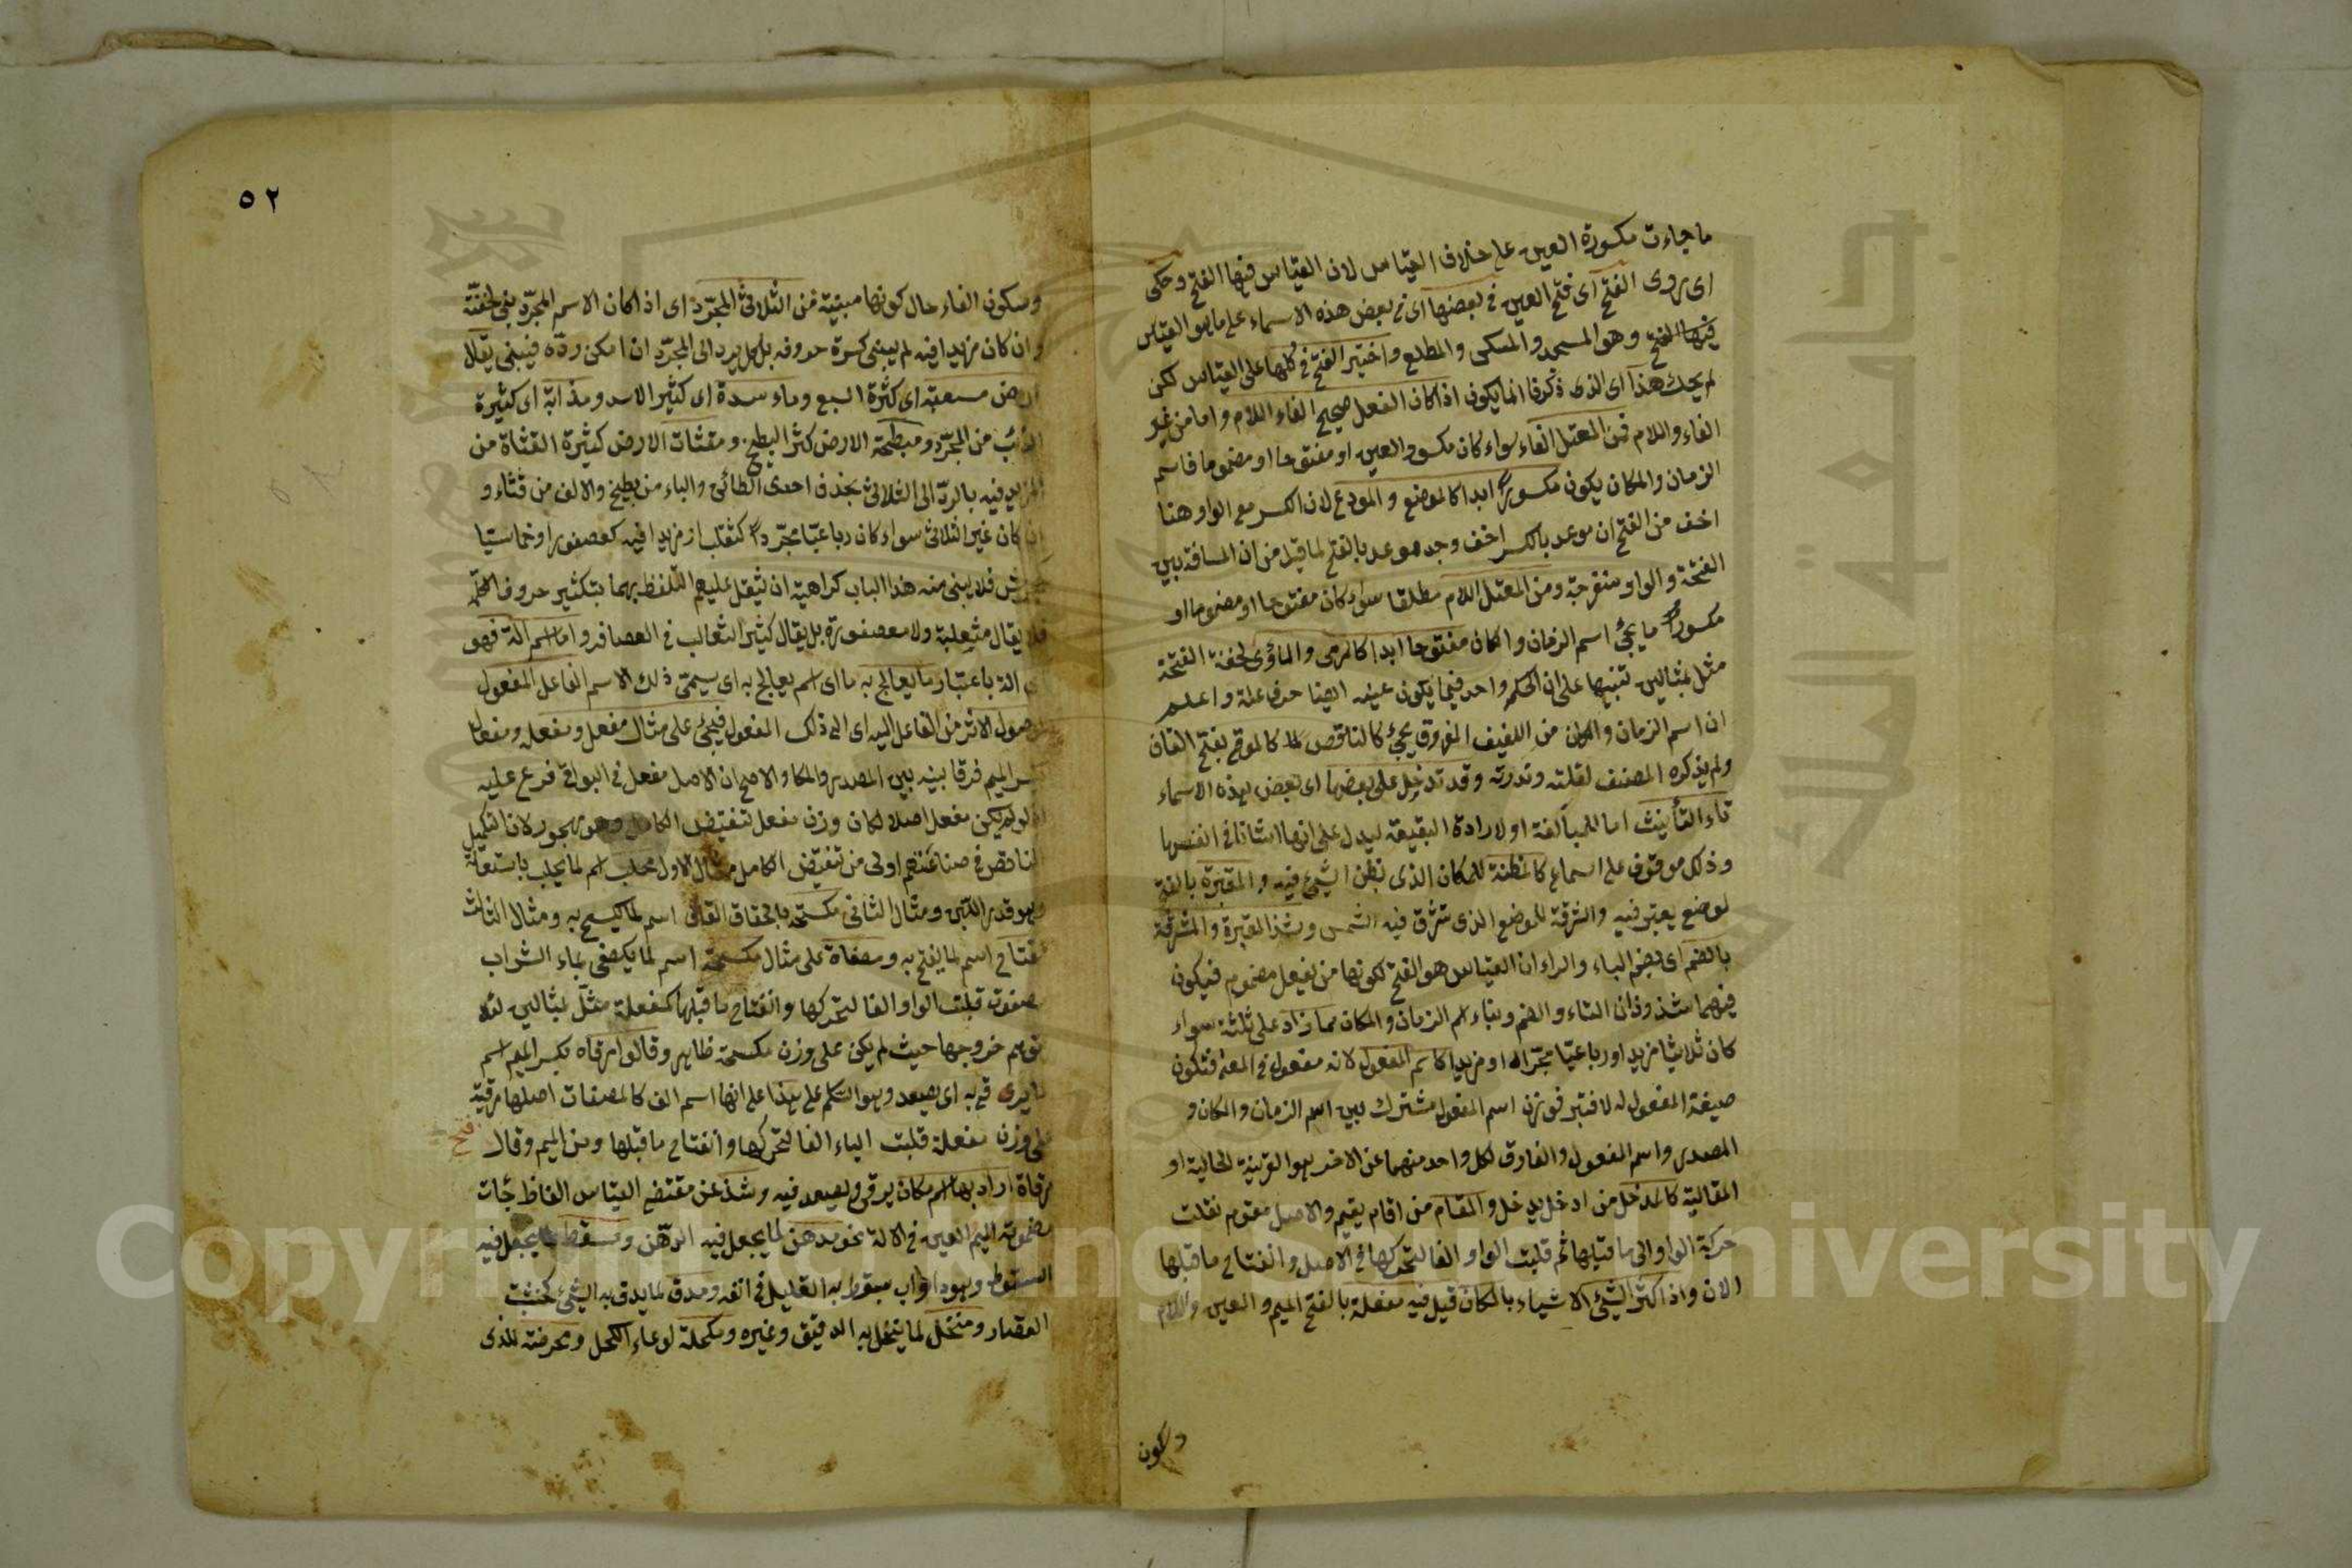 ما جاءت مكسورة العين على خلاف القياس لان القياس فيها الفتح وحكى
اى روى الفتح اى فتح العين فى بعضها اى فى بعض هذه الاسماء على ما هو القياس
فيها الفتح وهو المسجد والمسكن والمطلع واختير الفتح فى كلها على القياس لكن
لم يحك هذا اى الذى ذكرنا انما يكون اذا كان الفعل صحيح الفاء واللام واما من غير
الفاء واللام فمن المعتل الفاء سواء كان مكسور العين او مفتوحا او مضموما فاسم
الزمان والمكان يكون مكسورا ابدا كالموضع والموعد لان الكسر مع الواو هنا
اخف من الفتح ان موعد بالكسر اخف وجد موعد بالفتح لما قيل من ان المسافة بين
الفتحة والواو منفرجة ومن المعتل اللام مطلقا سواء كان مفتوحا او مضموما او
مكسورا ما يجئ اسم الزمان والمكان مفتوحا ابدا كالمرمى والمأوى لخفة الفتحة
مثل بمثالين تنبيها على ان الحكم واحد فيما يكون عينه ايضا حرف علة واعلم
ان اسم الزمان والمكان من اللفيف المفروق يجئ كالناقص كالموقى بفتح القاف
ولم يذكره المصنف لقلته وندرته وقد تدخل على بعضها اى بعض هذه الاسماء
تاء التأنيث اما للمبالغة او لارادة البقيعة ليدل على انها
وذلك موقوف على السماع كالمظنة للمكان الذى يظن الشئ فيه والمقبرة بالفتح
لموضع يقبر فيه والمشرقة للموضع الذى تشرق فيه الشمس وشذ المقبرة والمشرقة
بالضم اى بضم الباء والراء ان القياس هو الفتح لكونها من يفعل مضموم فيكون
فيهما شذوذان التاء والضم وبناء اسم الزمان والمكان مما زاد على ثلثة سواء
كان ثلاثيا مزيدا او رباعيا مجردا او مزيدا كاسم المفعول لانه مفعول فى المعنى فتكون
صيغة المفعول له اسم المفعول مشترك بين اسم الزمان والمكان و
المصدر واسم المفعول والفارق لكل واحد منهما عن الاخر هو القرينة الحالية او
المقالية كالمدخل من ادخل يدخل والمقام من اقام يقيم والاصل مقوم نقلت
حركة الواو الى ما قبلها ثم قلبت الواو الفا لتحركها فى الاصل وانفتاح ما قبلها
الان واذا كثر الشئ الاشياء بالمكان قيل فيه مفعلة بالفتح الميم والعين واللام
وسكون
٥٢
وسكون الفاء حال كونها مبنية من الثلاثى المجرد اى اذا كان الاسم المجرد بنى لخفته
وان كان مزيدا فيه لم يبنى كثرة حروفه بل يرد الى المجرد ان امكن رده فيبنى يقال
ارض مسبعة اى كثرة السبع وماءسدة اى كثير الاسد ومذابة اى كثيرة
الذئب من المجرد ومبطخة الارض كثر البطيخ ومقثات الارض كثيرة القثاة من
المزيد فيه بالرد الى الثلاثى بحذف احدى الطائى والياء من بطيخ والالف من قثاء و
ان كان غير الثلاثى سواء كان رباعيا مجردا كثعلب او مزيدا فيه كعصفور او خماسيا
فلا يبنى منه هذا الباب كراهية ان يثقل عليهم التلفظ بهما بتكثير حروف
فلا يقال مثعلبة ولا معصفورة بل يقال كثير الثعالب فى العصافر واما اسم الة فهو
اى الة باعتبار ما يعالج به ما اى اسم يعالج به اى يسمى ذلك الاسم الفاعل المفعول
لوصول الاثر من الفاعل اليه اى الى ذلك المفعول فيجئ على مثال مفعل ومفعلة ومفعال
بكسر الميم فرقا بينه بين المصدر والمكان والاصح ان الاصل مفعل فى البواقى فرع عليه
لو لم يكن مفعل اصلا لكان وزن مفعل تنقيض الكامل وهو مهجور لان تكميل
الناقص فى صناعتهم اولى من تنقيض الكامل مثال الاول محلب اسم لما يحلب باستعانة
وهو قدر اللبن ومثال الثانى مكسحة بالحقاق القاف اسم لما يكسح به ومثال الثالث
مفتاح اسم لما يفتح به ومصفاة على مثال مكسحة اسم لما يكصفى بماء الشراب
مصفوة قلبت الواو الفا لتحركها وانفتاح ما قبلها كمفعلة مثل بمثالين لئلا
توهم خروجها حيث لم يكن على وزن مكسحة ظاهر وقالوا مرقاه بكسر الميم اسم
ما يرقى به اى يصعد وهو السكم على هذا على انها اسم الف كالمصفات اصلها مرقية
على وزن مفعلة قلبت الياء الفا لتحركها وانفتاح ما قبلها ومن الميم وقال
فتح
مرقاة اراد بها اسم مكان يرقى ويصعد فيه وشذ عن مقتضى القياس الفاظ جات
مضمومة الميم العين فى الالة نحو مدهن لما يجعل فيه الدهن ومسقط لما يجعل فيه
السقوط وهو دواب يسقط به العليل فى انفه ومدق لما يدق به الشئ كخشب
القصار ومنخل لما ينخل به الدقيق وغيره ومكحلة لوعاء الكحل ومحرضة للذى
Copyright © King Saud University
جامعة الملك سعود